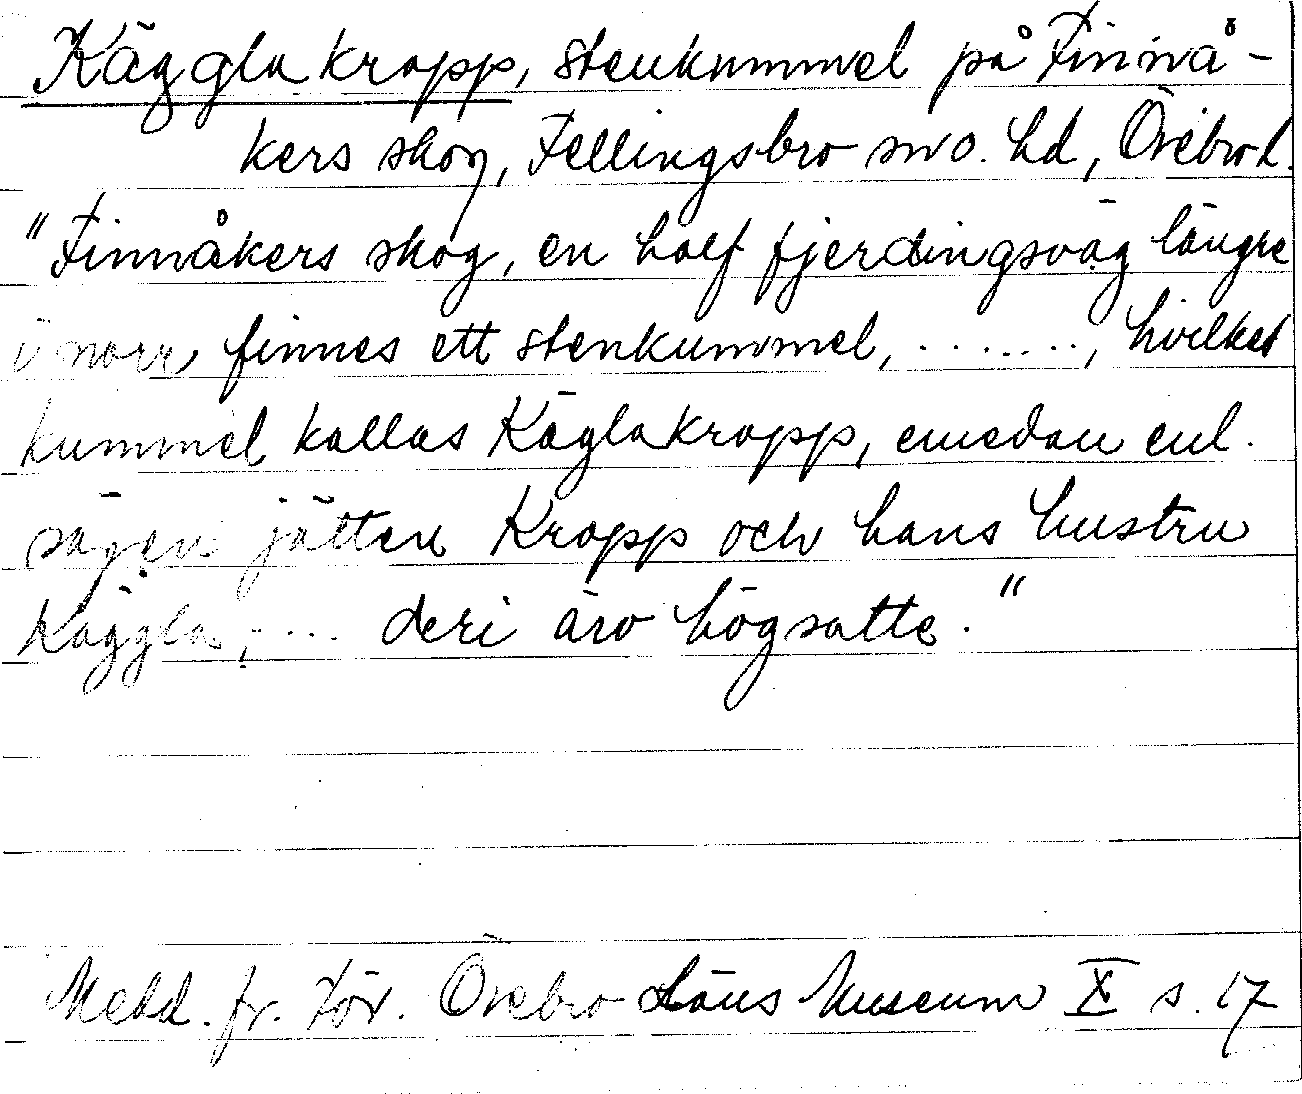 Kägglakropp, stenkummel på Finnå-
kers skog, Fellingsbro sn o. hd, Örebro l.
"Finnåkers skog, en half fjerdingsväg längre
i norr finnes ett stenkummel, ......., hvilket
kummel kallas Käglakropp, emedan enl.
sägen jätten Kropp och hans hustru
Käggla, .... deri äro högsatte."
Medd. fr. För. Örebro Läns Museum X s. 17